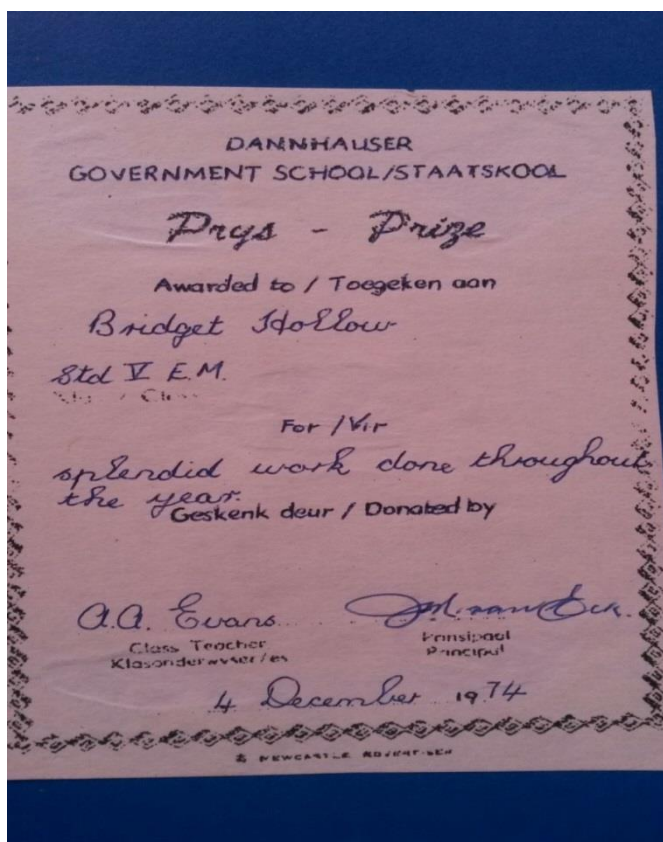 DANNHAUSER
GOVERNMENT SCHOOL/STAATSKOOL
Prys - Prize
Awarded to / Toegeken aan
Bridget Hollow
Std V E.M.
For / Vir
splendid work done throughout
the year.
Geskenk deur / Donated by
A.A. Evans
Class Teacher Prinsipaal
Klasonderwyser/es Principal
4 December 1974
NEWCASTLE ADVERTISER